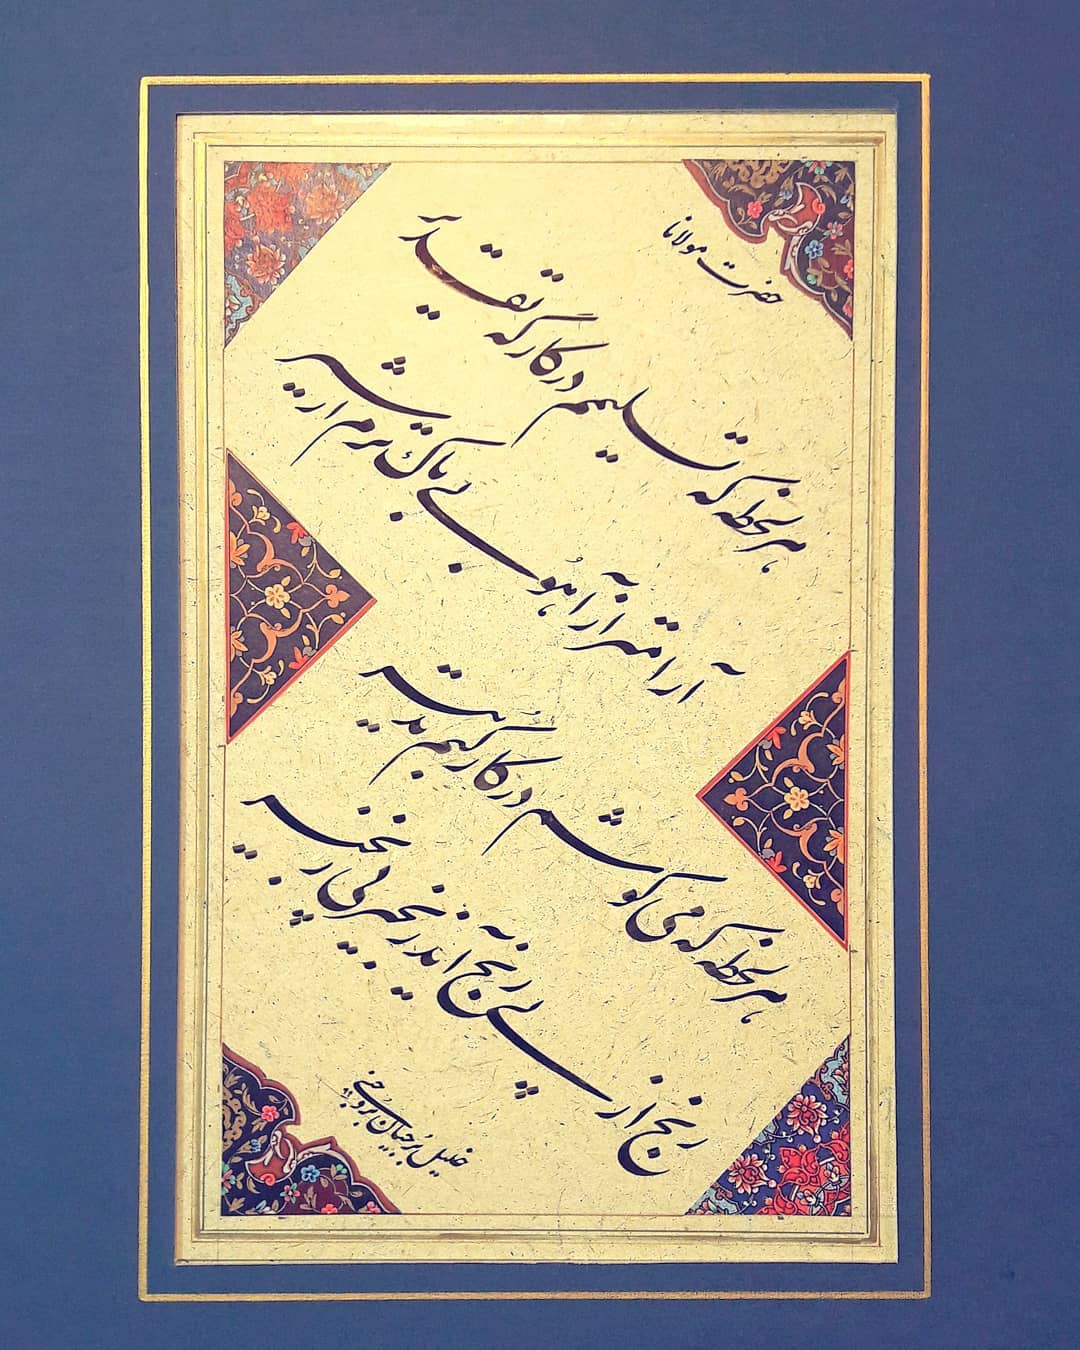 حضرت مولانا
هر لحظه که تسلیمم در کارگه تقدیر
آرامتر از آهو بی باک ترم از شیر
هر لحظه که می کوشم در کار کنم تدبیر
رنج از پی رنج آید زنجیر پی زنجیر
خلیل برجیان بروجنی